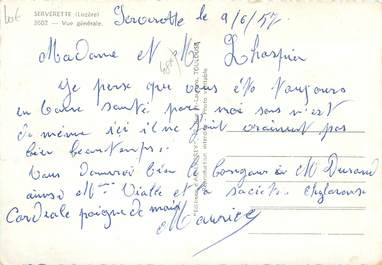 Lot
SERVERETTE (Lozère)
3602 - Vue générale.
Serverette le 9/6/57
Madame et M Lhospier
Je pense que vous êts toujours
en bonne santé pour moi sans n'est
de même ici il ne fait vraiment pas
bien beautemps.
Vous donnerai bien le bonjour à M Durand
ainsi Mme Vialle et la société
Cordiale poigne de main
Maurice